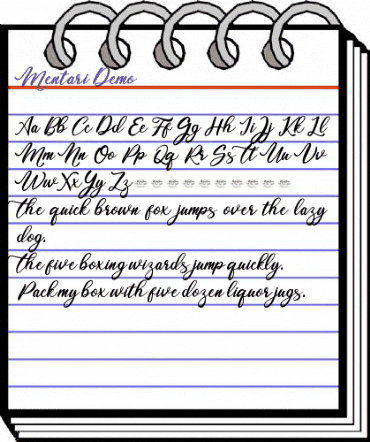 Mentari Demo
Aa Bb Cc Dd Ee Ff Gg Hh Ii Jj Kk Ll
Mm Nn Oo Pp Qq Rr Ss Tt Uu Vv
Ww Xx Yy Zz
the quick brown fox jumps over the lazy
dog.
the five boxing wizards jump quickly.
Pack my box with five dozen liquor jugs.